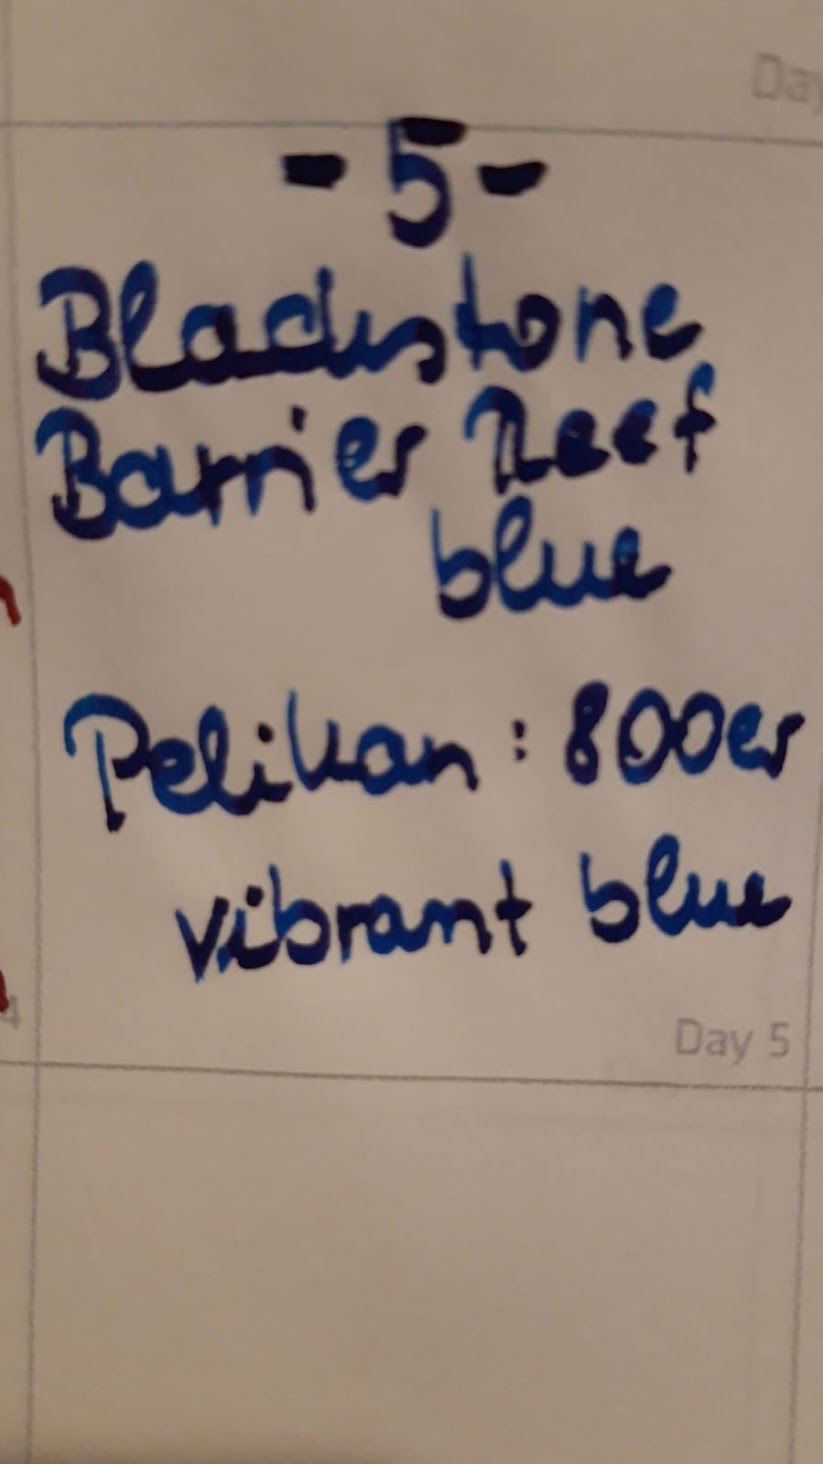 Day
- 5 -
Blackstone
Barrier Reef
blue
Pelikan : 800er
vibrant blue
4
Day 5